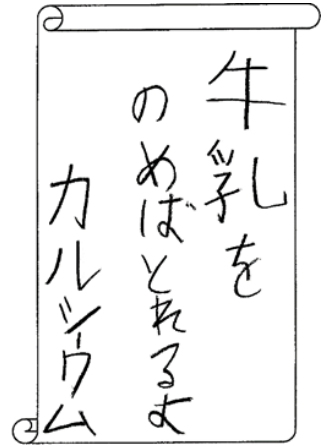 牛乳を
のめばとれるよ
カルシウム